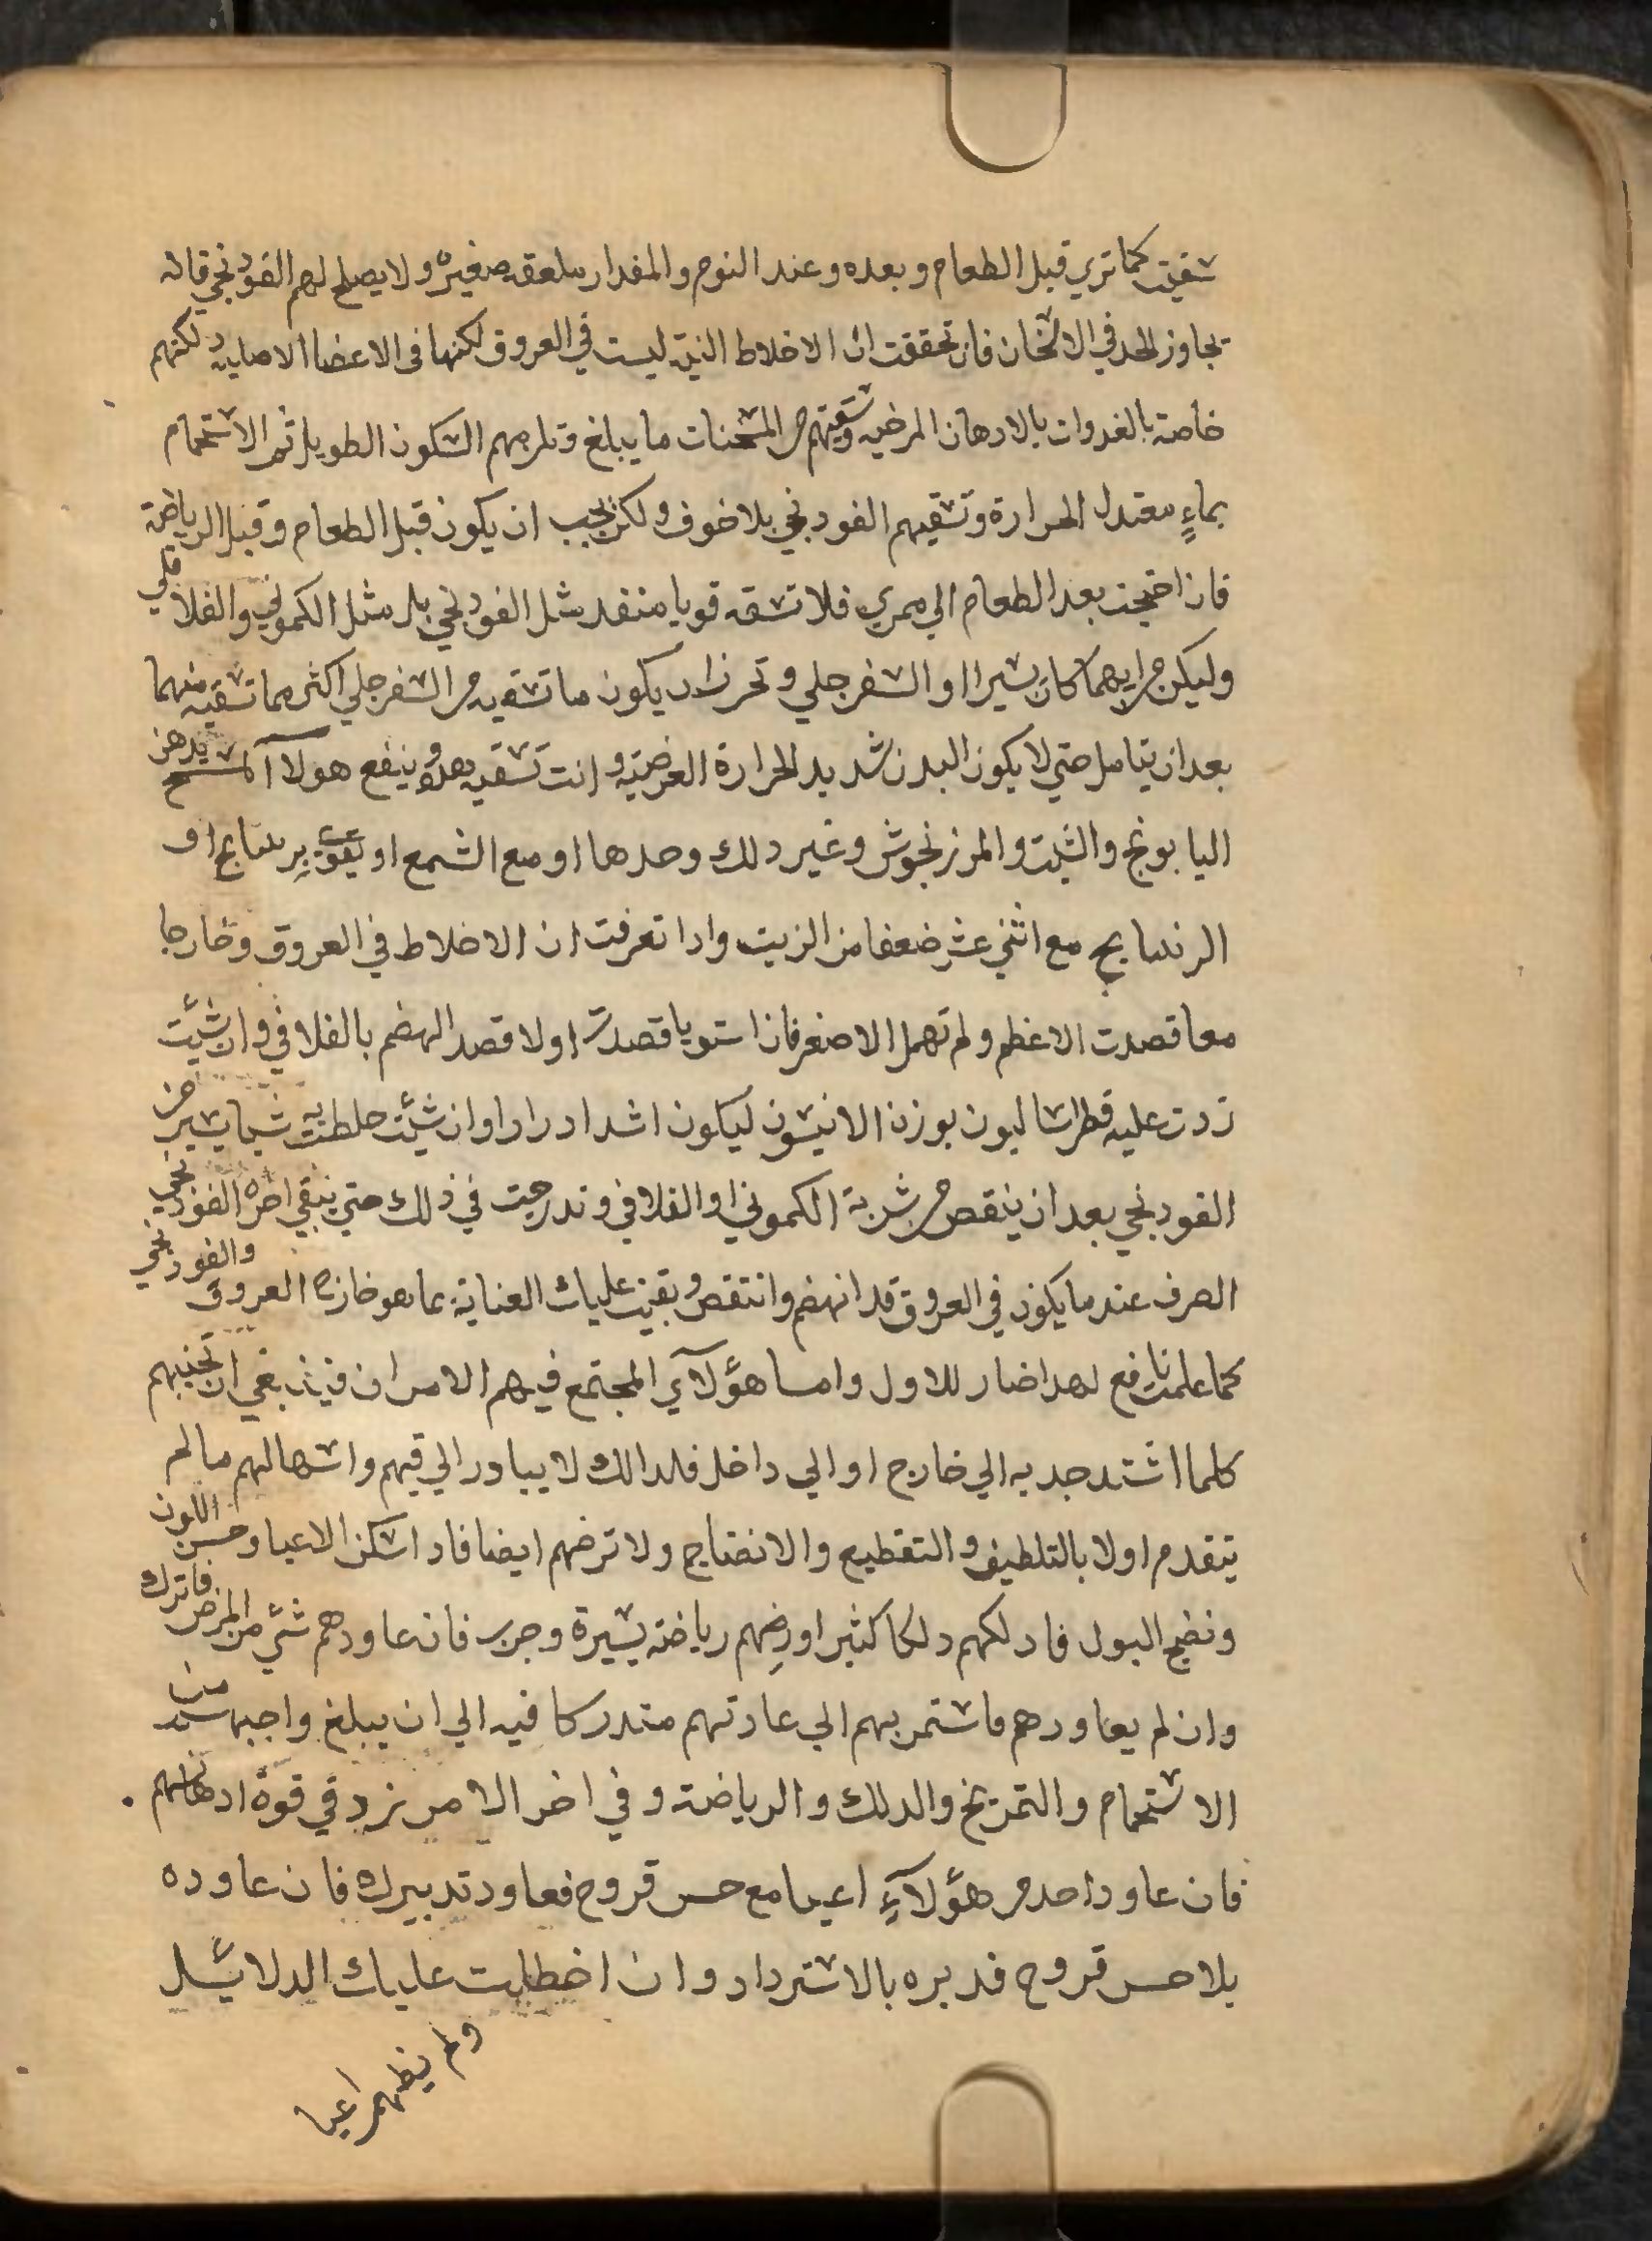 سقيت كما تري قبل الطعام وبعده وعند النوم والمقدار ملعقه صغيرة ولا يصلح لهم الفودنجي فانه
يجاوز الحد في الاسخان فان تحققت ان الاخلاط النية ليست في العروق لكنها في الاعضا الاصلية دلكتهم
خاصة بالغدوات بالادهان المرخيه وسقيتهم من المسخنات ما يبلغ وتلزمهم السكون الطويل ثم الاستحمام
بماءٍ معتدل الحرارة وتسقيهم الفودنجي بلا خوف ولكن يجب ان يكون قبل الطعام وقبل الرياضة
فان احتجت بعد الطعام الي ممري فلا تسقه قويا منفد مثل الفودنجي بل مثل الكموني والفلافلي
وليكن من ايهما كان يسيرا او السفرجلي وتحرز ان يكون ما تسقيه من السفرجلي اكثر مما تسقيه منهما
بعد ان يتامل حتي لا يكون البدن شديد الحرارة العرضية وانت تسقيه هذه وينفع هولا آلمسح بدهن
البابونج والشبت والمرزنجوش وغير دلك وحدها او مع الشمع او يقوي برسابج او
الرنسابج مع اثني عشر ضعفا من الزيت وادا تعرفت ان الاخلاط في العروق وخارجا
معا قصدت الاعظم ولم تهمل الاصغر فان استويا قصدت اولا قصد الهضم بالفلافلي وان شئت
زدت عليه فطراسا ليون بوزن الانيسون ليكون اشد ادرارا وان شئت خلطت به شيا يسير من
الفودنجي بعد ان ينقص من شربة الكموني او الفلافلي وتدرجت في ذلك حتي يبقي اخره الفودنجي
الصرف عند ما يكون في العروق قد انهضم وانتقص وبقيت عليك العناية بما هو خارج العروق والفودنجي
كما علمت نافع لهدا ضار للاول واما هؤلآي المجتمع فيهم الامران فينبغي ان تجنبهم
كلما اشتد جدبه الي خارج او الي داخل فلدالك لا يبادر الي قيهم واسهالهم ما لم
يتقدم اولا بالتلطيف والتقطيع والانضاج ولا ترضهم ايضا فادا سكن الاعيا وحسن اللون
ونضج البول فادلكهم دلكا كثيرا ورضهم رياضة يسيرة وجرب فان عاودهم شئ من المرض فاترك
وان لم يعاودهم فاستمر بهم الي عادتهم متدركا فيه الي ان يبلغ واجبهم من
الاستحمام والتمريخ والدلك والرياضة وفي اخر الامر نزد في قوة ادهانهم
فان عاود احد من هؤلآءِ اعيا مع حس قروح فعاود تدبيرك فان عاوده
بلا حس قروح فدبره بالاسترداد وان اختلطت عليك الدلائل
ولم يظهر اعيا